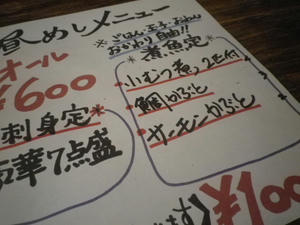 昼めしメニュー
オール
¥600
刺身定
豪華7点盛
※ごはん、玉子、おみそ
おかわり自由!!
煮魚定
いむつ煮、2ヒ付
鯛かぶと
サーモンかぶと